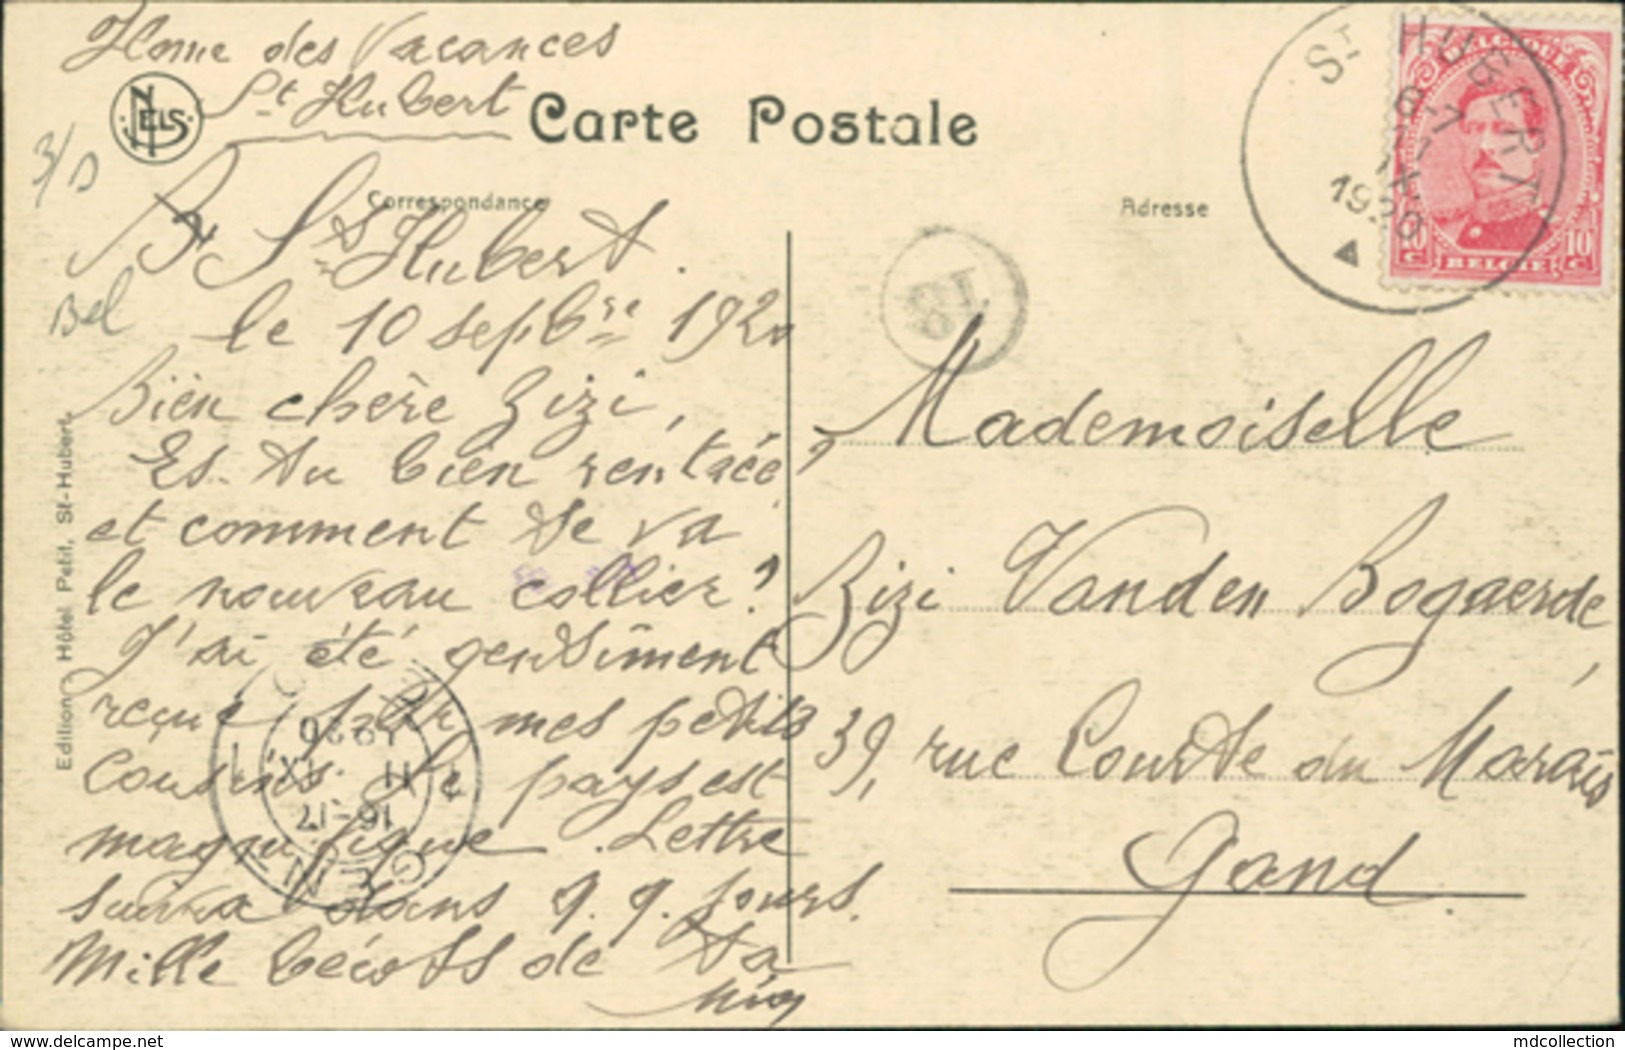 Home des Vacances
St Hubert
NELS
Carte Postale
3/5
Bel
Correspondance
Adresse
St HUBERT
6-7
11
IX
1920
BELGIQUE
10 c
10 c
BELGIË
18
St Hubert.
le 10 sepbre 1920
Bien chère Zizi,
Es-tu bien rentrée,
et comment te va
le nouveau collier?
J'ai été gentiment
reçue par mes petits
cousins. Le pays est
magnifique. Lettre
suivra dans q.q. jours.
Mille bécots de ta
Mademoiselle
Zizi Vanden Bogaerde,
39, rue Courte du Marais
Gand.
GENT
16-17
11 IX
1920
Edition Hôtel Petit, St-Hubert.
delcampe.net
mdcollection